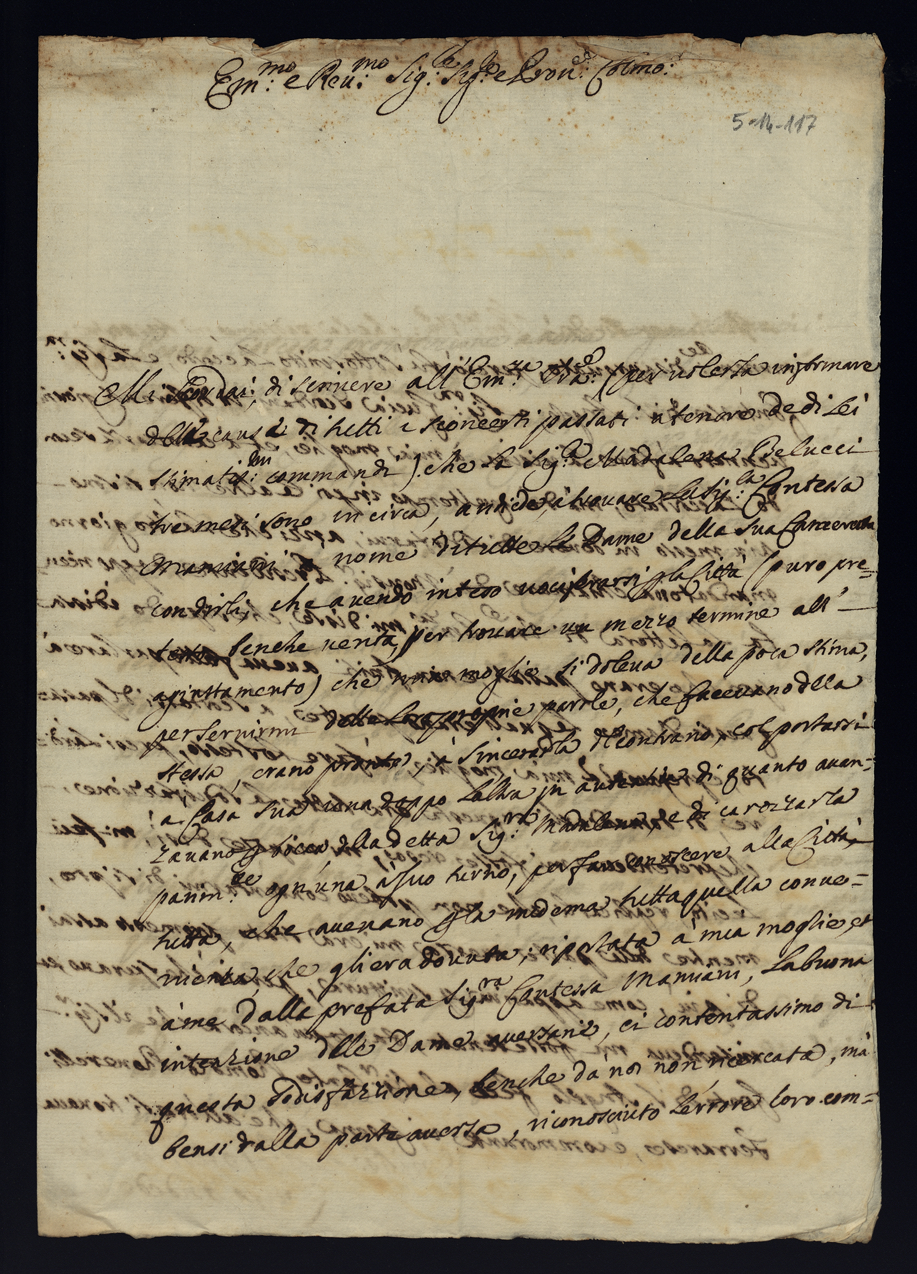 Em:mo e Reu:mo Sig:re Sig:re e Pron: Colmo:
5-14-117
Mi diedi di scriuere all' Em:za V:ra (per uolerla informare
della causa di tutti i sconcerti passati à tenore de di Lei
stimatis:mi commandi) che la Sig:ra Madalena Belucci
tre mesi sono in circa, andò à trouare la Sig:ra Contessa
Mamiani à nome di tutte le Dame della sua
condirli, che auendo inteso uociferarsi p la Città (puro pre=
testo, benche uerità, per trouare un mezzo termine all'
agiustamento) che mia moglie si doleua della poca stima,
per seruirmi delle loro proprie parole, che faceuano della
stessa, erano pronte, à sincerarla del contrario, col portarsi
à Casa sua una doppo l'altra in autentica di quanto auan=
zauano p bocca della detta Sig:ra Madalena e di carozzarla
parim:te ogn'una à suo turno, per far conoscere alla Città
tutta, che aueuano p la medema tutta quella conue=
nienza, che gli era douuta; riportata à mia moglie, et
à me dalla prefata Sig:ra Contessa Mamiani, la buona
intenzione delle Dame auersarie, ci contentassimo di
questa sodisfazzione, benche da noi non ricercata, mà
bensi dalla parte auersa, riconosciuto l'errore loro com=